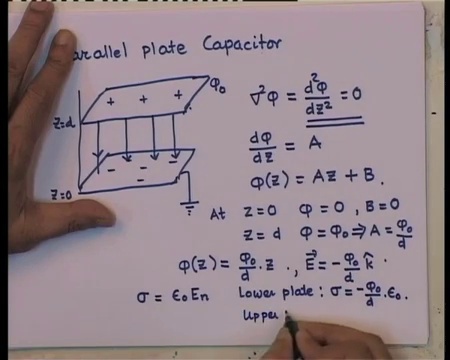 arallel plate Capacitor
+ + + φ₀
∇²φ = d²φ/dz² = 0
z=d
dφ/dz = A
- - - - -
φ(z) = Az + B.
z=0
At z=0 φ=0, B=0
z=d φ=φ₀ ⇒ A = φ₀/d
φ(z) = φ₀/d . z , E⃗ = - φ₀/d k̂ .
σ = ε₀En Lower plate : σ = - φ₀/d . ε₀.
Upper :